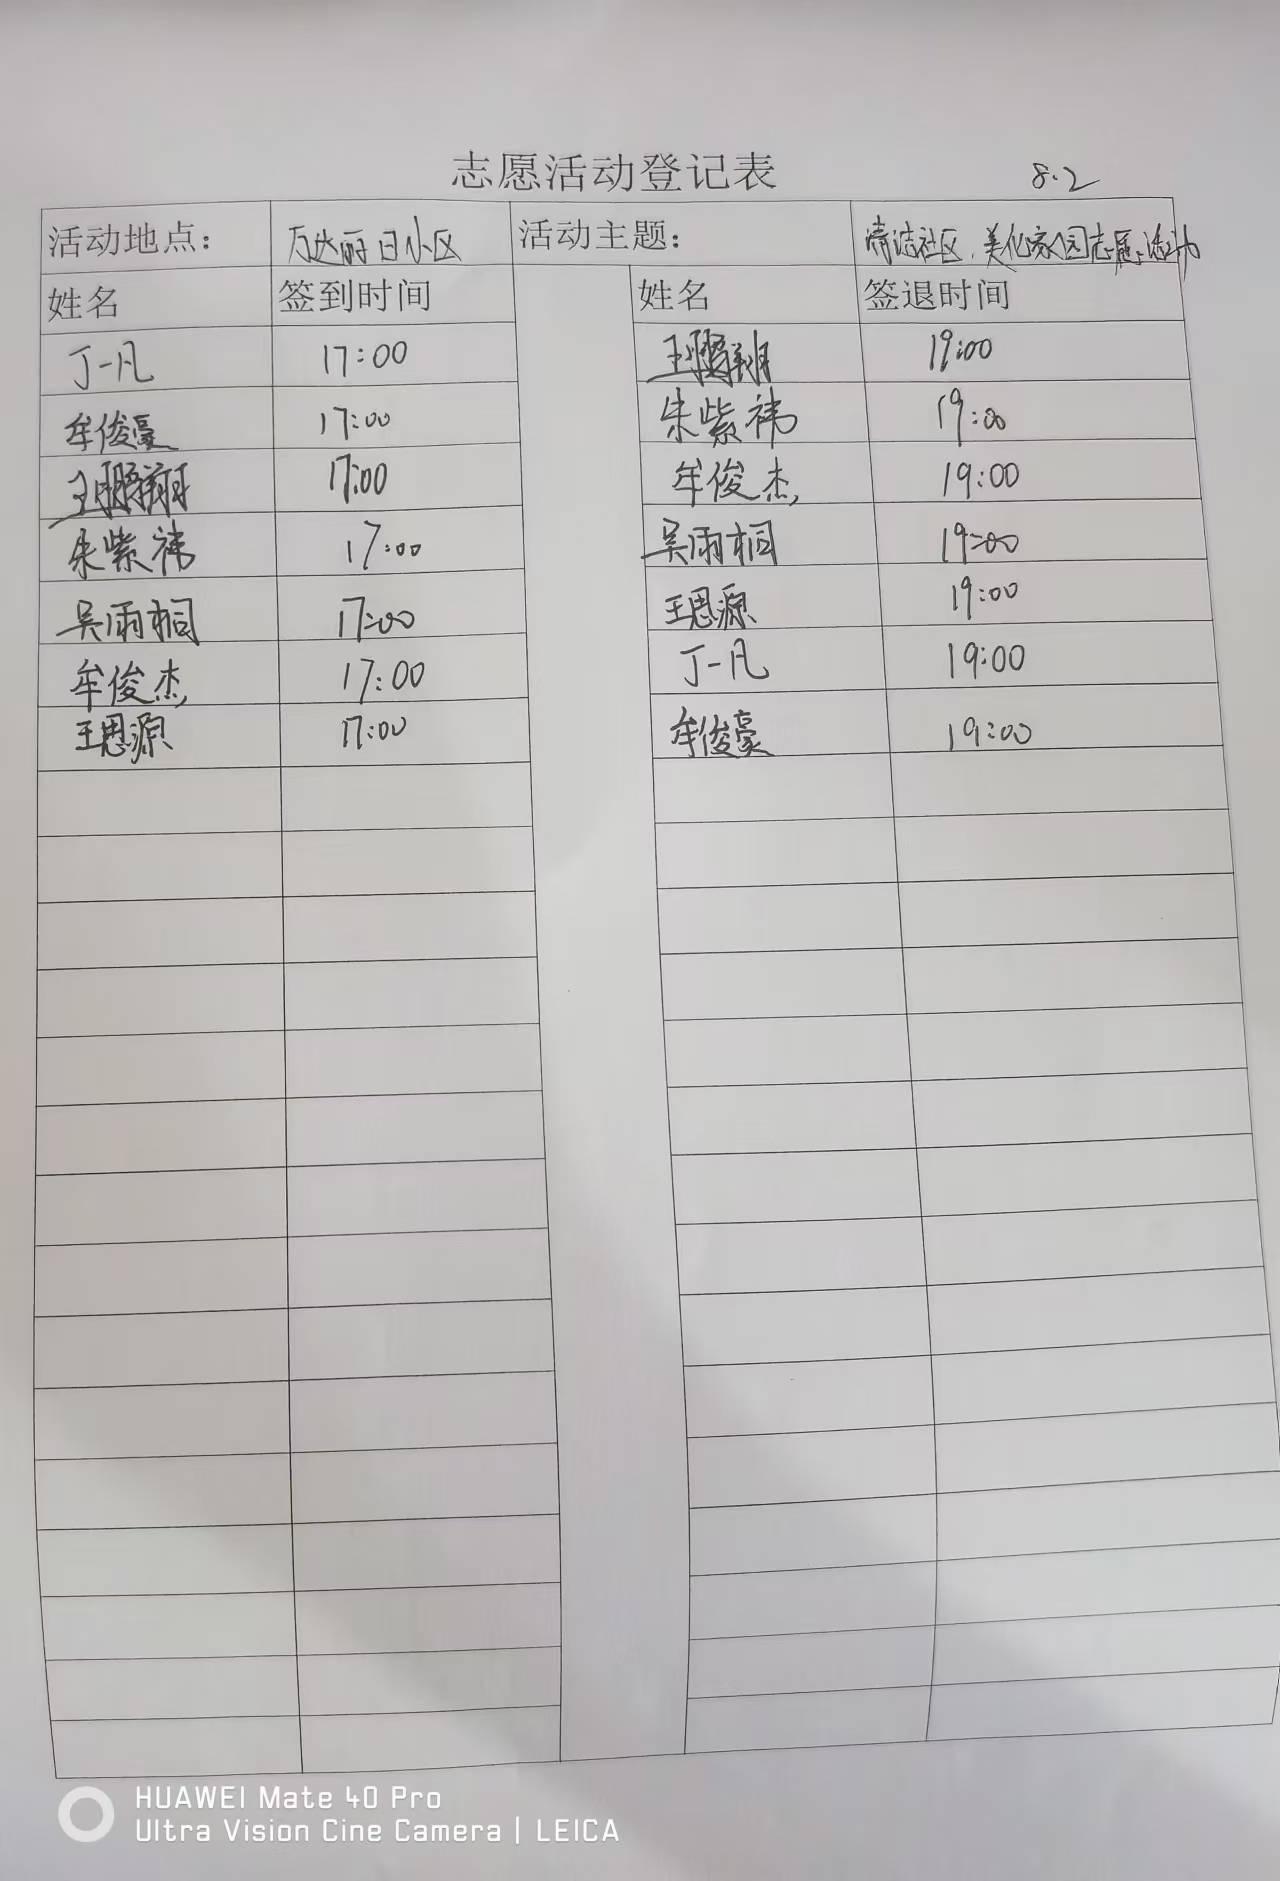 志愿活动登记表 8.2
活动地点： 万达丽日小区 活动主题： 清洁社区、美化家园志愿活动
姓名 签到时间 姓名 签退时间
丁一凡 17:00 王鹏翔 19:00
牟俊豪 17:00 朱紫祎 19:00
王鹏翔 17:00 牟俊杰 19:00
朱紫祎 17:00 吴雨桐 19:00
吴雨桐 17:00 王思源 19:00
牟俊杰 17:00 丁一凡 19:00
王思源 17:00 牟俊豪 19:00
HUAWEI Mate 40 Pro
Ultra Vision Cine Camera | LEICA